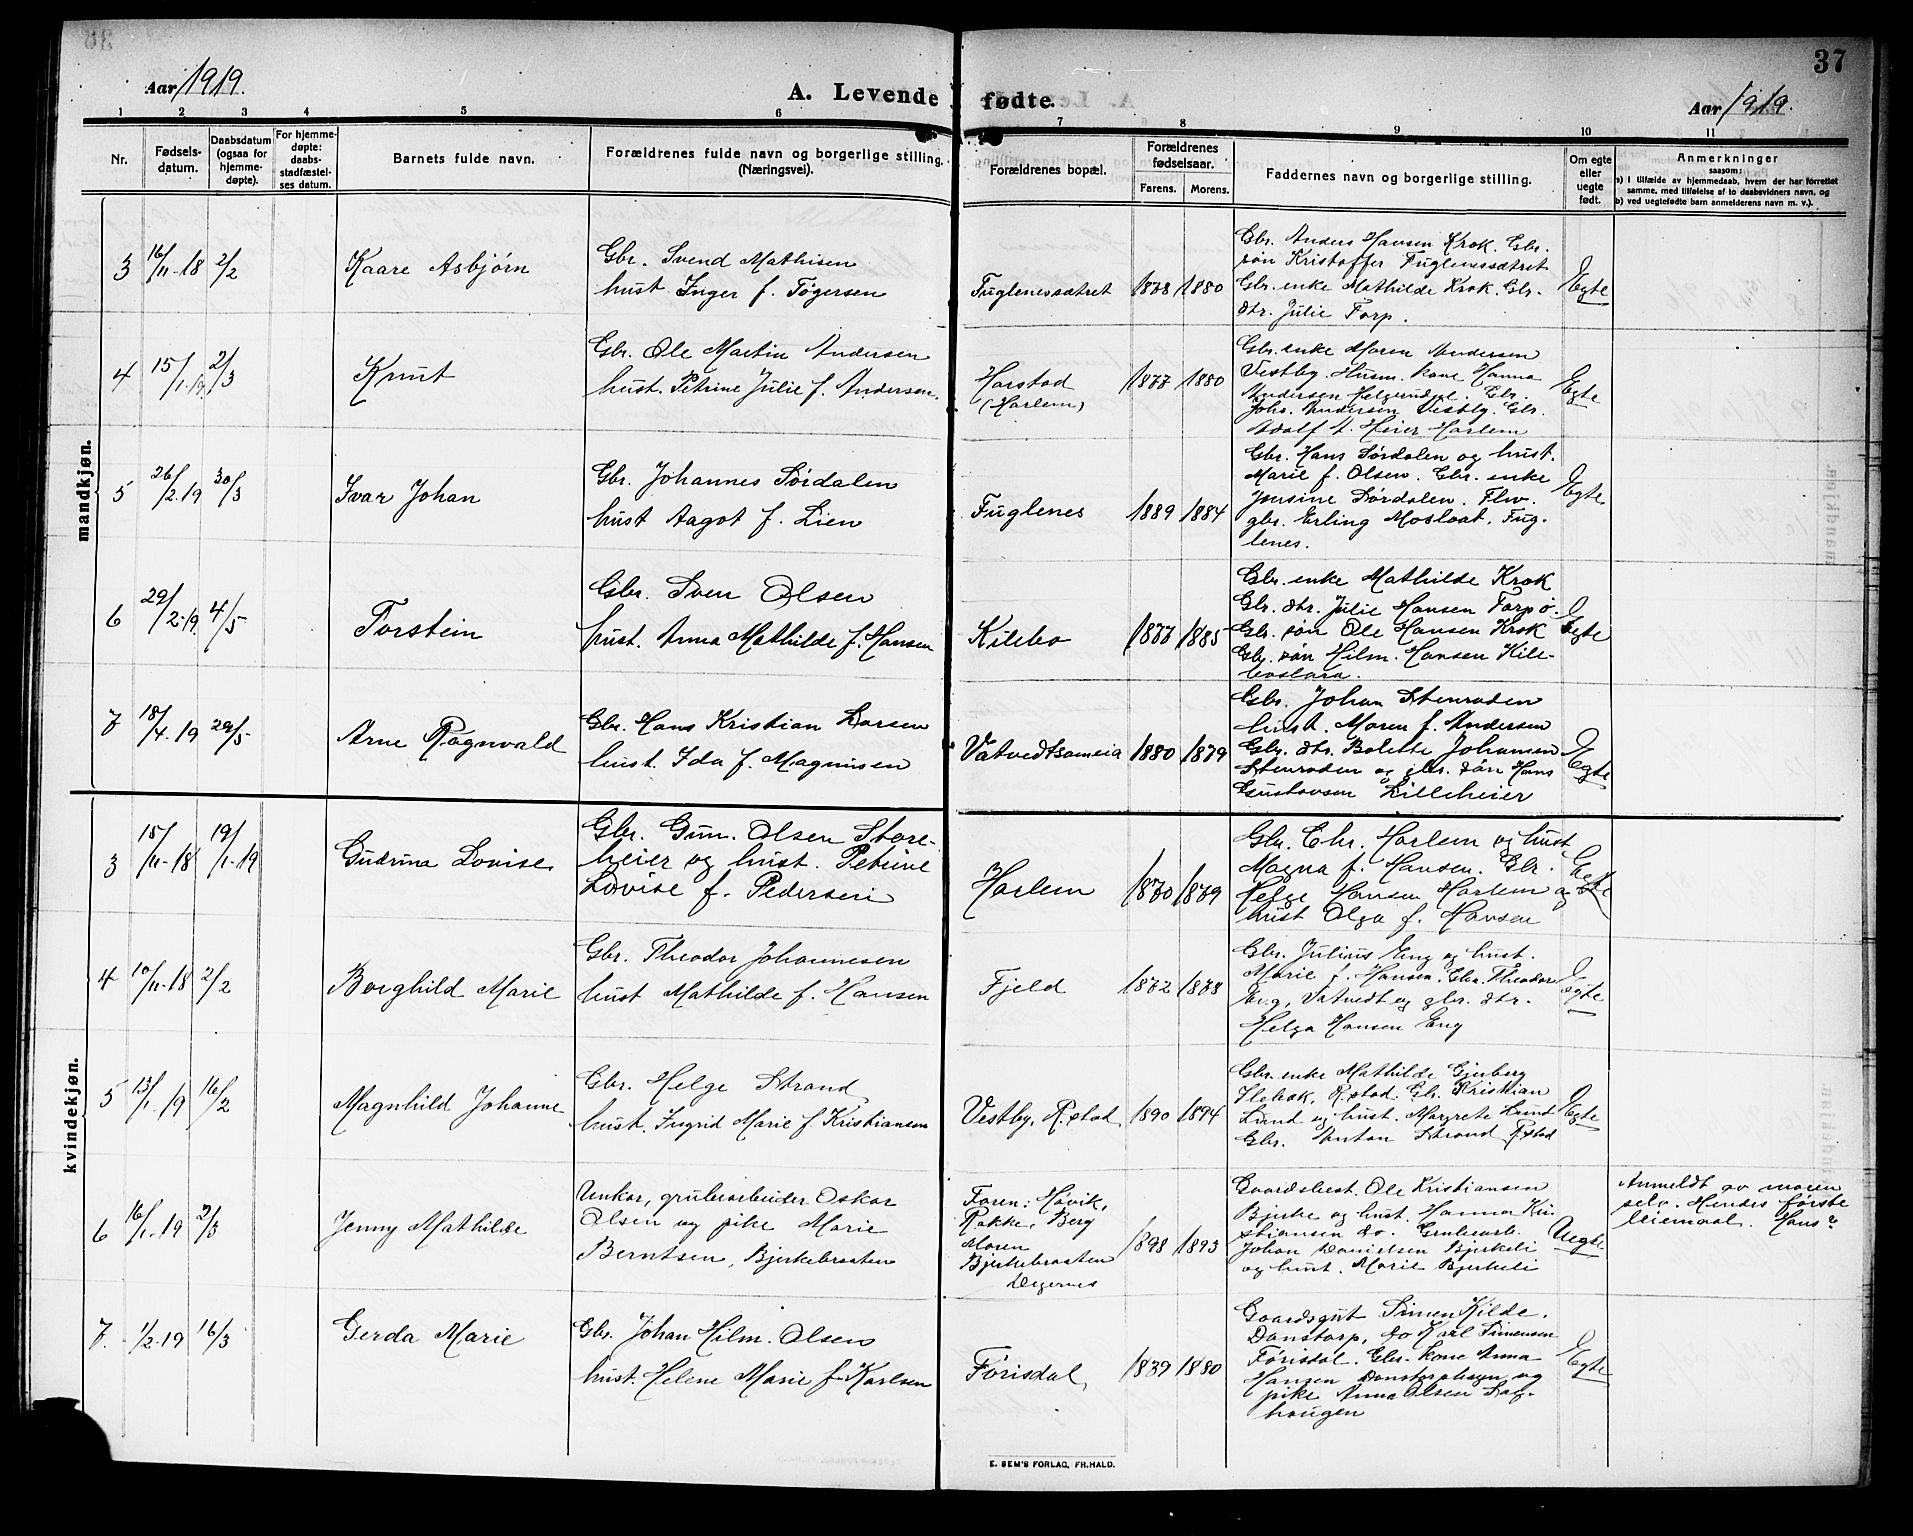 37
Aar 1919.
A. Levende fødte.
Aar 1919.
1 2 3 4 5 6 7 8 9 10 11
Nr.
Fødsels-
datum.
Daabsdatum
(ogsaa for
hjemme-
døpte).
For hjemme-
døpte:
daabs-
stadfæstel-
ses datum.
Barnets fulde navn.
Forældrenes fulde navn og borgerlige stilling.
(Næringsvei).
Forældrenes bopæl.
Forældrenes
fødselsaar.
Farens. Morens.
Faddernes navn og borgerlige stilling.
Om egte
eller
uegte
født.
Anmerkninger
saasom:
a) I tilfælde av hjemmedaab, hvem der har forrettet
samme, med tilføielse af to daabsvidners navn, og
b) ved uegtefødte barn anmelderens navn m. v.).
mandkjøn.
3 16/11-18 2/2 Kaare Asbjørn
Gbr. Svend Mathisen
hust. Inger f. Tøgersen
Fuglenessætret 1878 1880
Gbr. Anders Hansen Krok. Gbr.
søn Kristoffer Fuglenessætret
Gbr. enke Mathilde Krok. Gbr.
dtr. Julie Torp.
Egte
4 15/1.19 2/3 Knut
Gbr. Ole Martin Andersen
hust. Petrine Julie f. Andersen.
Harstad
(Harlem)
1877 1880
Gbr. enke Maren Andersen
Vestby. Husm. kone Hanna
Andersen. Gbr.
Johs. Andersen Vestby. Gbr.
Adolf A. Heier Harlem
Egte
5 26/2.19 30/3 Ivar Johan
Gbr. Johannes Sørdalen
hust Aagot f. Lien
Fuglenes 1889 1884
Gbr. Hans Sørdalen og hust.
Marie f. Olsen. Gbr. enke
Jensine Sørdalen. Flw.
gbr. Erling Mosloat, Fug-
lenes.
Egte
6 29/2.19 4/5 Torstein
Gbr. Sven Olsen
hust. Anna Mathilde f. Hansen
Kilebo 1877 1885
Gbr. enke Mathilde Krok
Gbr. dtr. Julie Hansen Torpø.
Gbr. søn Ole Hansen Krok
Gbr. søn Hilm. Hansen Kile-
Egte
7 18/4.19 29/5 Arne Ragnvald
Gbr. Hans Kristian Larsen
hust. Ida f. Magnusen
Vatvedtsameia 1880 1879
Gbr. Johan Stenroden
hust. Maren f. Andersen
Gbr. dtr. Bolette Johansen
Stenroden og gbr. søn Hans
Gustavsen Lilleheier
Egte
kvindekjøn.
3 15/11-18 19/1-19 Gudruna Lovise
Gbr. Gun. Olsen Store-
heier og hust. Petrine
Lovise f. Pedersen
Harlem 1870 1879
Gbr. Chr. Harlem og hust
Magna f. Hansen. Gbr.
Helge Hansen Harlem og
hust Olga f. Hansen
Egte
4 10/11-18 2/2 Borghild Marie
Gbr. Theodor Johannesen
hust Mathilde f. Hansen
Fjeld 1872 1878
Gbr. Julius Eng og hust.
Marie f. Hansen. Gbr. Theodor
Eng, Vatvedt og gbr. dtr.
Helga Hansen Eng
Egte
5 13/1.19 16/2 Magnhild Johanne
Gbr. Helge Strand
hust. Ingrid Marie f Kristiansen
Vestby, R.stad. 1890 1894
Gbr. enke Mathilde Gjerberg
R.stad. Gbr. Kristian
Lund og hust. Margrete Lund
Gbr. Anton Strand R.stad
Egte
6 16/1.19 2/3 Jenny Mathilde
Unkar, grubearbeider Oskar
Olsen og pike Marie
Berntsen, Bjerkebraaten
Faren: Høvik,
Rakke, Berg
Moren
Bjerkebraaten
Degernes
1898 1893
Gaardsbest. Ole Kristiansen
Bjerke og hust. Hanna Kri-
stiansen do. Grubearb.
Johan Danielsen Bjerkeli
og hust. Marie Bjerkeli
Uegte
Anmeldt av moren
selv. Hendes første
leiemaal. Hans?
7. 1/2-19 16/3 Gerda Marie
Gbr. Johan Hilm. Olsen
hust. Helene Marie f. Karlsen
Førisdal, 1879 1880
Gaardsgut Simen Kilde.
Danstorp, do Karl Simensen
Førisdal. Gbr. kone Anna
Hansen og
pike Anna Olsen
haugen
Egte
E. SEM'S FORLAG, FR.HALD.